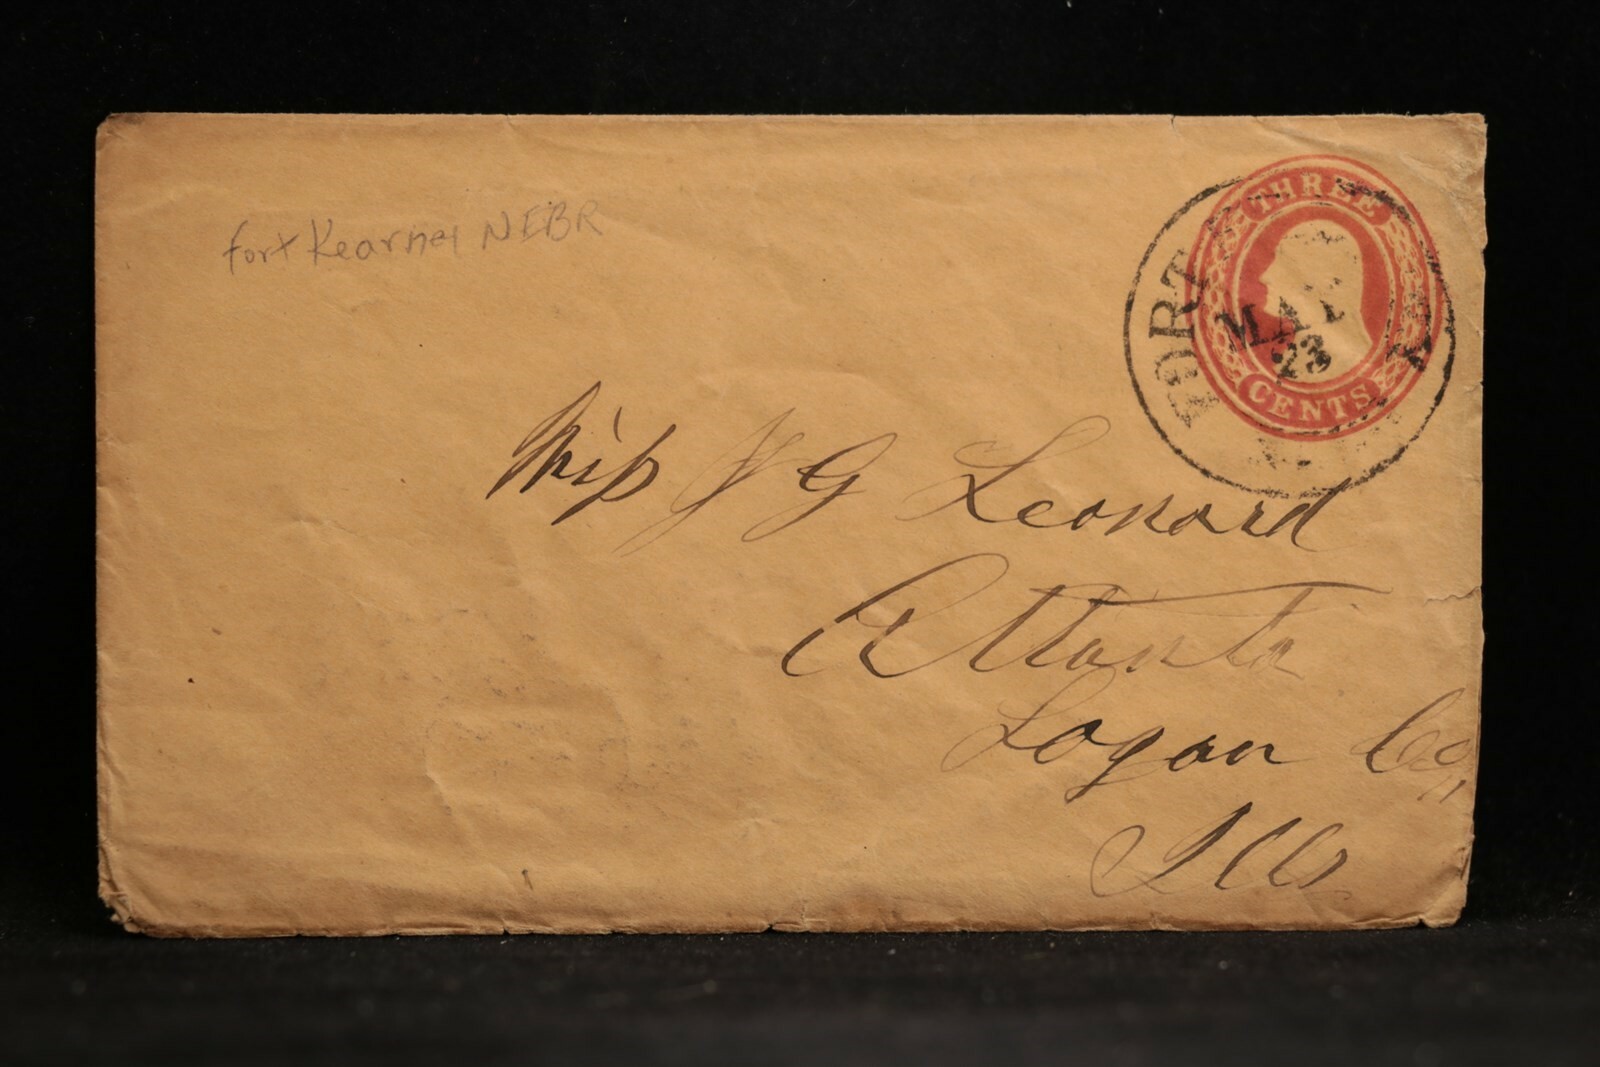 fort Kearney NEBR
THREE
CENTS
FORT
MAY
23
Miss J G Leonard
Atlanta
Logan Co
Ills